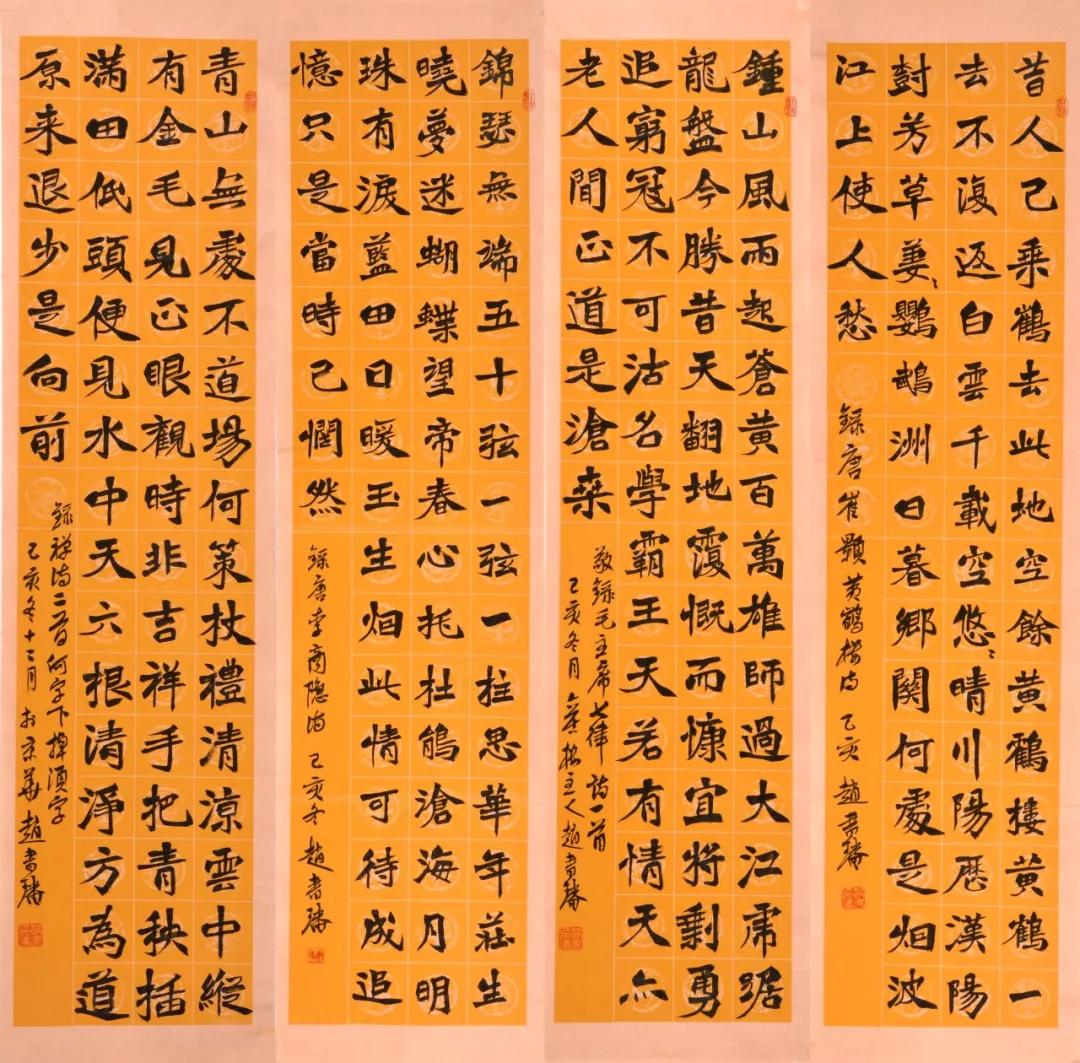 昔人已乘鶴去此地空餘黃鶴樓黃鶴一
去不復返白雲千載空悠〻晴川陽歷漢陽
樹芳草萋〻鸚鵡洲日暮鄉關何處是烟波
江上使人愁
錄唐崔顥黃鶴樓詩 己亥 趙書
鍾山風雨起蒼黃百萬雄師過大江虎踞
龍盤今勝昔天翻地覆慨而慷宜將剩勇
追窮寇不可沽名學霸王天若有情天亦
老人間正道是滄桑
敬錄毛主席七律詩一首
己亥冬月 樓主人趙書
錦瑟無端五十弦一弦一柱思華年莊生
曉夢迷蝴蝶望帝春心托杜鵑滄海月明
珠有淚藍田日暖玉生烟此情可待成追
憶只是當時已惘然
錄唐李商隱詩 己亥冬 趙書
青山無處不道場何策杖禮清涼雲中縱
有金毛見正眼觀時非吉祥手把青秧插
滿田低頭便見水中天六根清淨方為道
原来退步是向前
錄禪詩二首何字下掉須字
己亥冬十二月於京華趙書